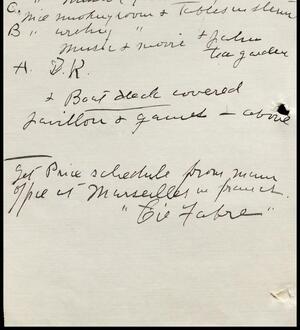 C.
Nice smoking room & Tables in stern
B " writing "
Music & movie & palm
tea garden
A. D.K.
& Boat deck covered
pavillon & games - above
Get Price schedule from main
office at Marseilles in francs.
"Cie Fabre"